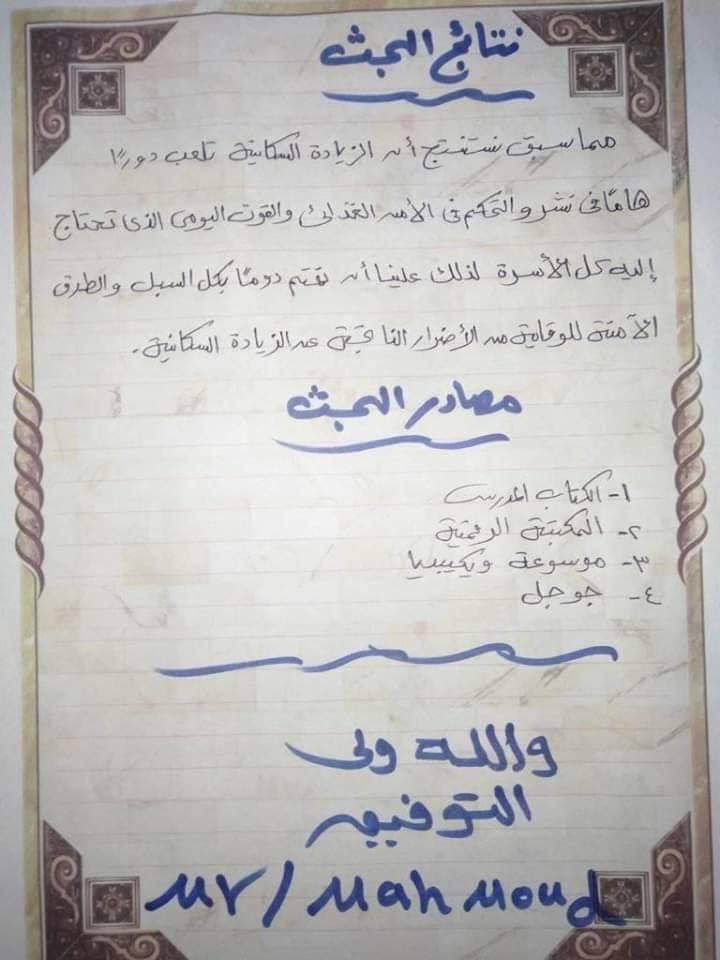 نتائج البحث
مما سبق نستنتج أن الزيادة السكانية تلعب دورًا
هامًا فى نشر والتحكم فى الأمن الغذائى والقوت اليومى الذى تحتاج
إليه كل الأسرة لذلك علينا أن نهتم دومًا بكل السبل والطرق
الآمنة للوقاية من الأضرار الناتجة عن الزيادة السكانية.
مصادر البحث
١- الكتاب المدرسى
٢- المكتبة الرقمية
٣- موسوعة ويكيبيديا
٤- جوجل
والله ولى
التوفيق
Mr/Mahmoud